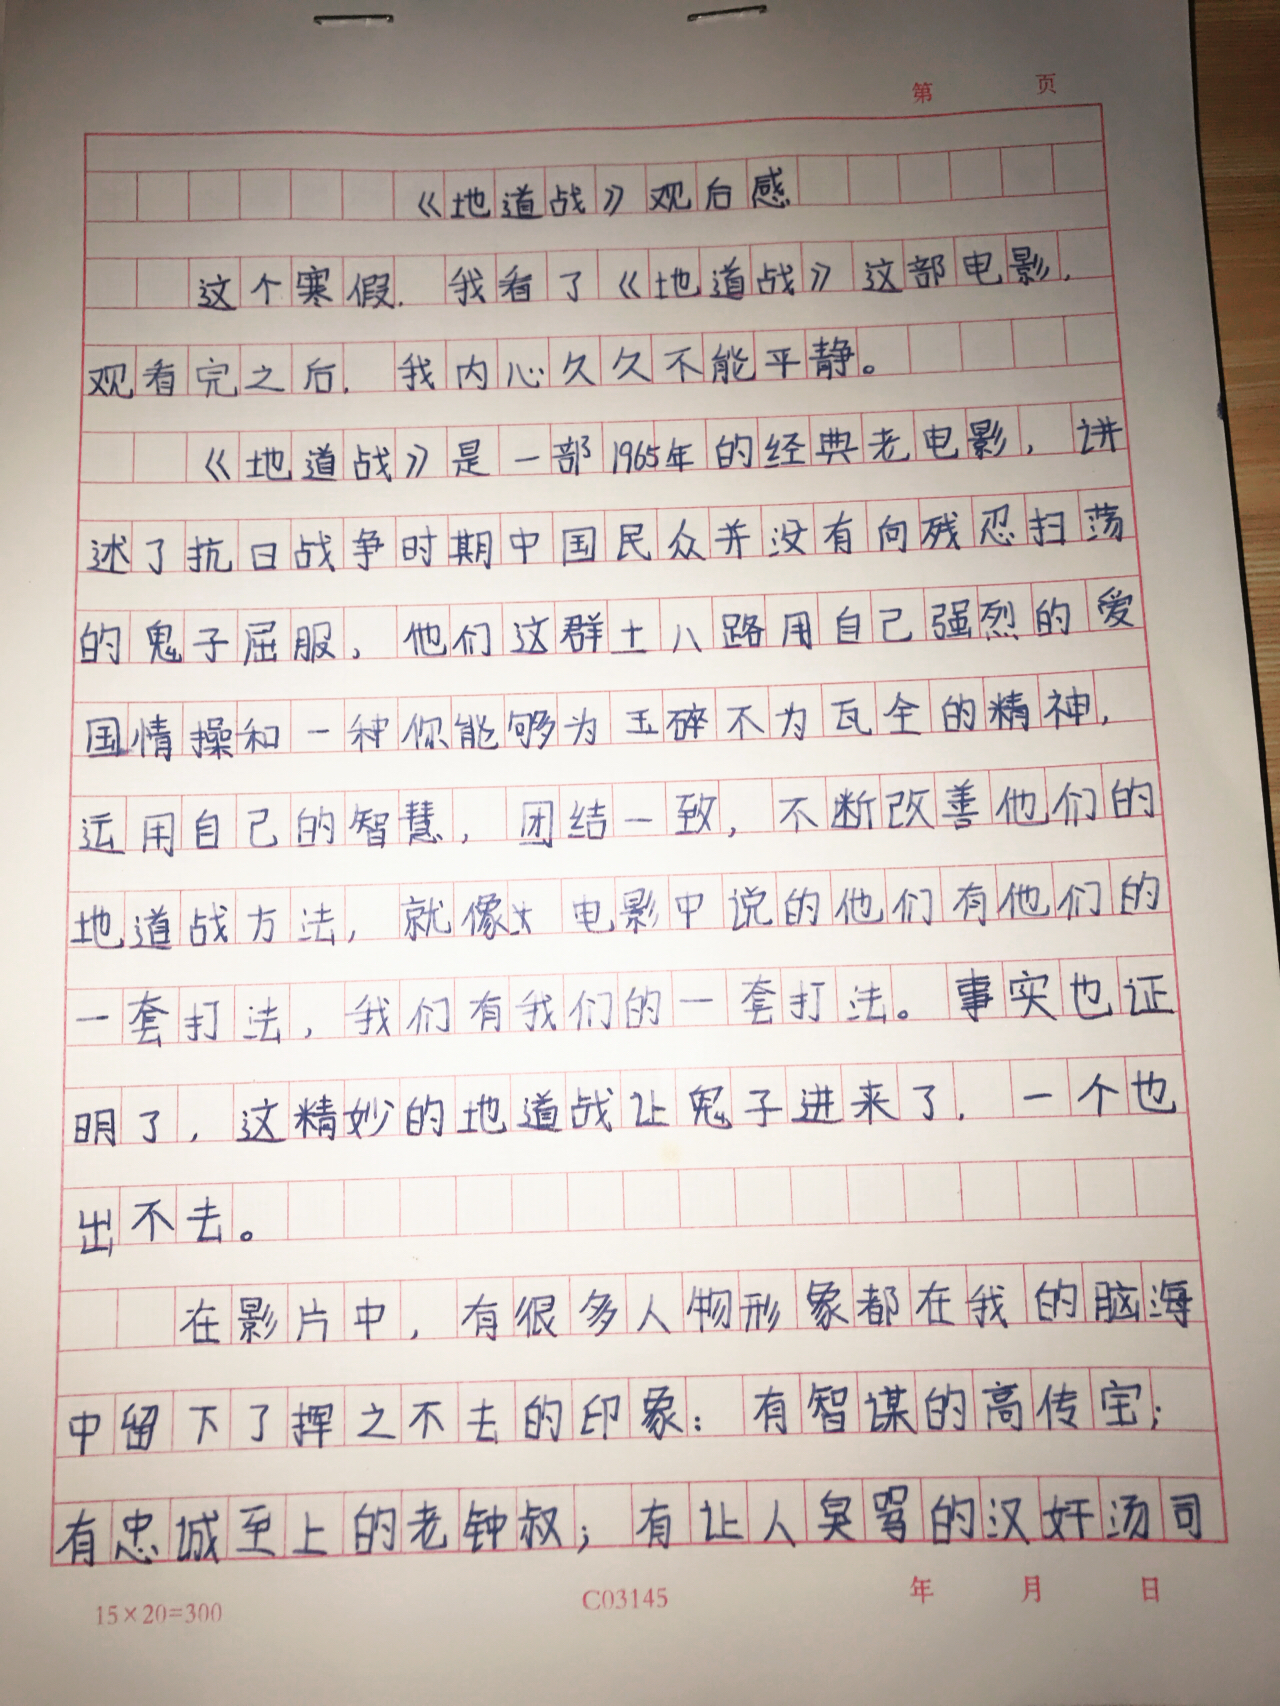 第 页
《地道战》观后感
这个寒假，我看了《地道战》这部电影，
观看完之后，我内心久久不能平静。
《地道战》是一部1965年的经典老电影，讲
述了抗日战争时期中国民众并没有向残忍扫荡
的鬼子屈服，他们这群土八路用自己强烈的爱
国情操和一种你能够为玉碎不为瓦全的精神，
运用自己的智慧，团结一致，不断改善他们的
地道战方法，就像 电影中说的他们有他们的
一套打法，我们有我们的一套打法。事实也证
明了，这精妙的地道战让鬼子进来了，一个也
出不去。
在影片中，有很多人物形象都在我的脑海
中留下了挥之不去的印象：有智谋的高传宝；
有忠诚至上的老钟叔；有让人臭骂的汉奸汤司
15×20=300 C03145 年 月 日